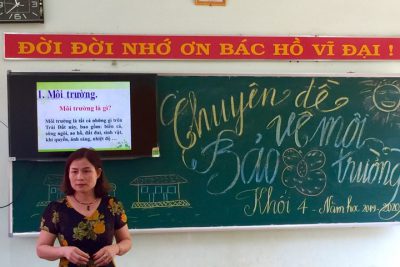 ĐỜI ĐỜI NHỚ ƠN BÁC HỒ VĨ ĐẠI !
1. Môi trường.
Môi trường là gì?
Môi trường là tất cả những gì trên
Trái Đất này, bao gồm: biển cả,
sông ngòi, ao hồ, đất đai, sinh vật,
khí quyển, ánh sáng, nhiệt độ ...
Chuyên đề
Bảo vệ môi
trường
Khối 4 - Năm học 2019-2020